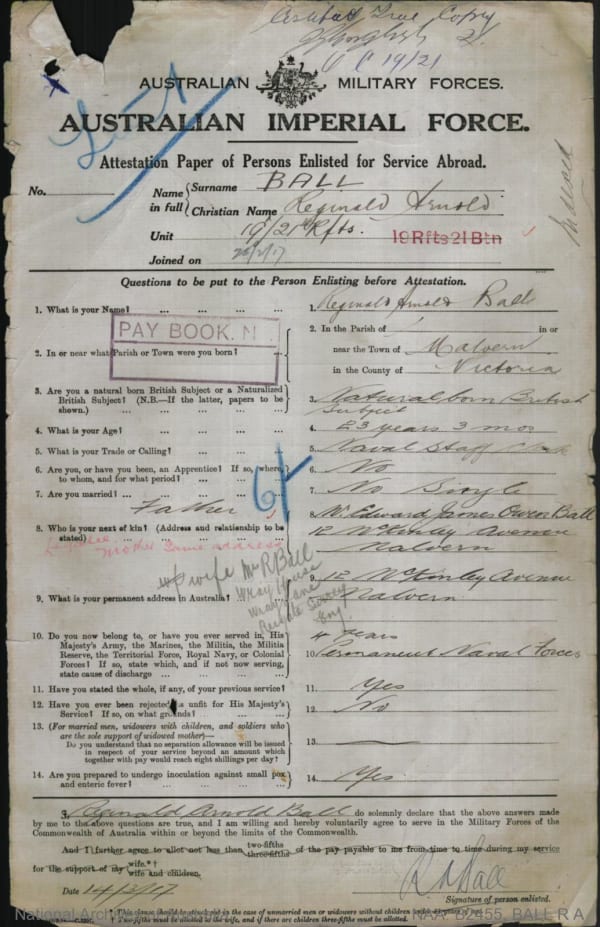 Certified True Copy
19/21
Lieut
AUSTRALIAN MILITARY FORCES.
AUSTRALIAN IMPERIAL FORCE.
Attestation Paper of Persons Enlisted for Service Abroad.
No.
Name in full { Surname BALL
Christian Name Reginald Arnold
Unit 19/21st Rfts. 19Rfts21Btn
Joined on 26/2/17
Questions to be put to the Person Enlisting before Attestation.
1. What is your Name? ... ... ... ... 1. Reginald Arnold Ball
PAY BOOK. N
2. In or near what Parish or Town were you born? ... 2. In the Parish of in or
near the Town of Malvern
in the County of Victoria
3. Are you a natural born British Subject or a Naturalized
British Subject? (N.B.—If the latter, papers to be
shown.) ... ... ... ... 3. Natural born British
Subject
4. What is your Age? ... ... ... ... 4. 23 years 3 mos
5. What is your Trade or Calling? ... ... ... 5. Naval Staff Clerk
6. Are you, or have you been, an Apprentice? If so, where,
to whom, and for what period? ... ... ... 6. No
7. Are you married? ... ... ... ... 7. No Single
Father
8. Who is your next of kin? (Address and relationship to be
stated) 8. Mr Edward James Owen Ball
12 McKinley Avenue
Malvern
Mother Same address
wife Mrs R Ball
Wray House
Wray Lane
Reigate Surrey
Eng.
9. What is your permanent address in Australia? 9. 12 McKinley Avenue
Malvern
10. Do you now belong to, or have you ever served in, His
Majesty's Army, the Marines, the Militia, the Militia
Reserve, the Territorial Force, Royal Navy, or Colonial
Forces? If so, state which, and if not now serving,
state cause of discharge ... ... ... 10. 4 Years
Permanent Naval Forces
11. Have you stated the whole, if any, of your previous service? 11. Yes
12. Have you ever been rejected as unfit for His Majesty's
Service? If so, on what grounds? ... ... 12. No
13. (For married men, widowers with children, and soldiers who
are the sole support of widowed mother)—
Do you understand that no separation allowance will be issued
in respect of your service beyond an amount which
together with pay would reach eight shillings per day? 13.
14. Are you prepared to undergo inoculation against small pox
and enteric fever? ... ... ... ... 14. Yes.
I, Reginald Arnold Ball do solemnly declare that the above answers made
by me to the above questions are true, and I am willing and hereby voluntarily agree to serve in the Military Forces of the
Commonwealth of Australia within or beyond the limits of the Commonwealth.
And I further agree to allot not less than two-fifths three-fifths of the pay payable to me from time to time during my service
for the support of my wife.*† wife and children.
Date 14/2/17 R A Ball
Signature of person enlisted.
* This clause should be struck out in the case of unmarried men or widowers without children under 18 years of age.
† Two-fifths must be allotted to the wife, and if there are children three-fifths must be allotted.
NAA: B2455, BALL R A